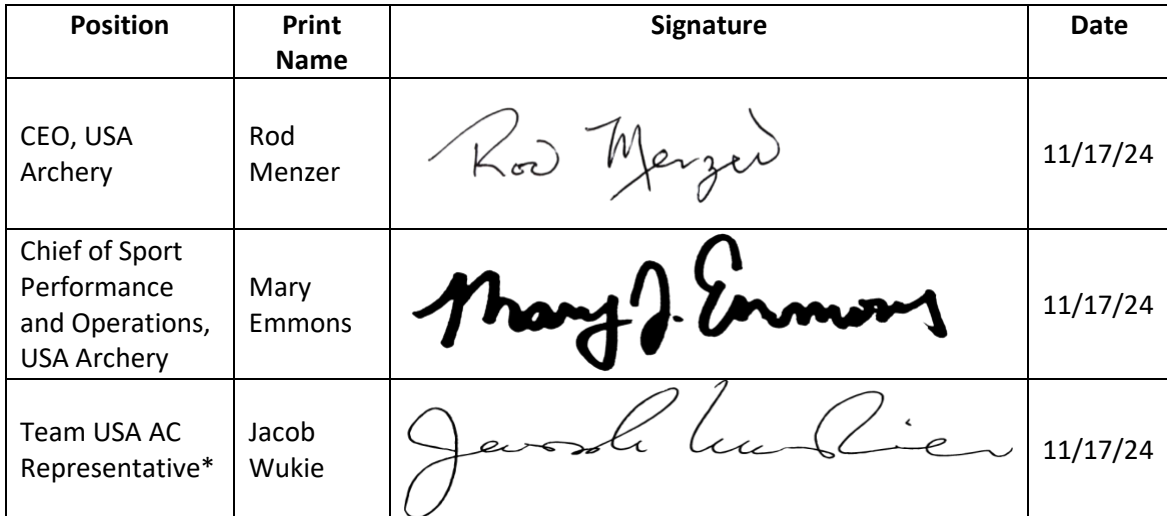 Position
Print
Name
Signature
Date
CEO, USA
Archery
Rod
Menzer
Rod Menzer
11/17/24
Chief of Sport
Performance
and Operations,
USA Archery
Mary
Emmons
Mary J. Emmons
11/17/24
Team USA AC
Representative*
Jacob
Wukie
Jacob Wukie
11/17/24